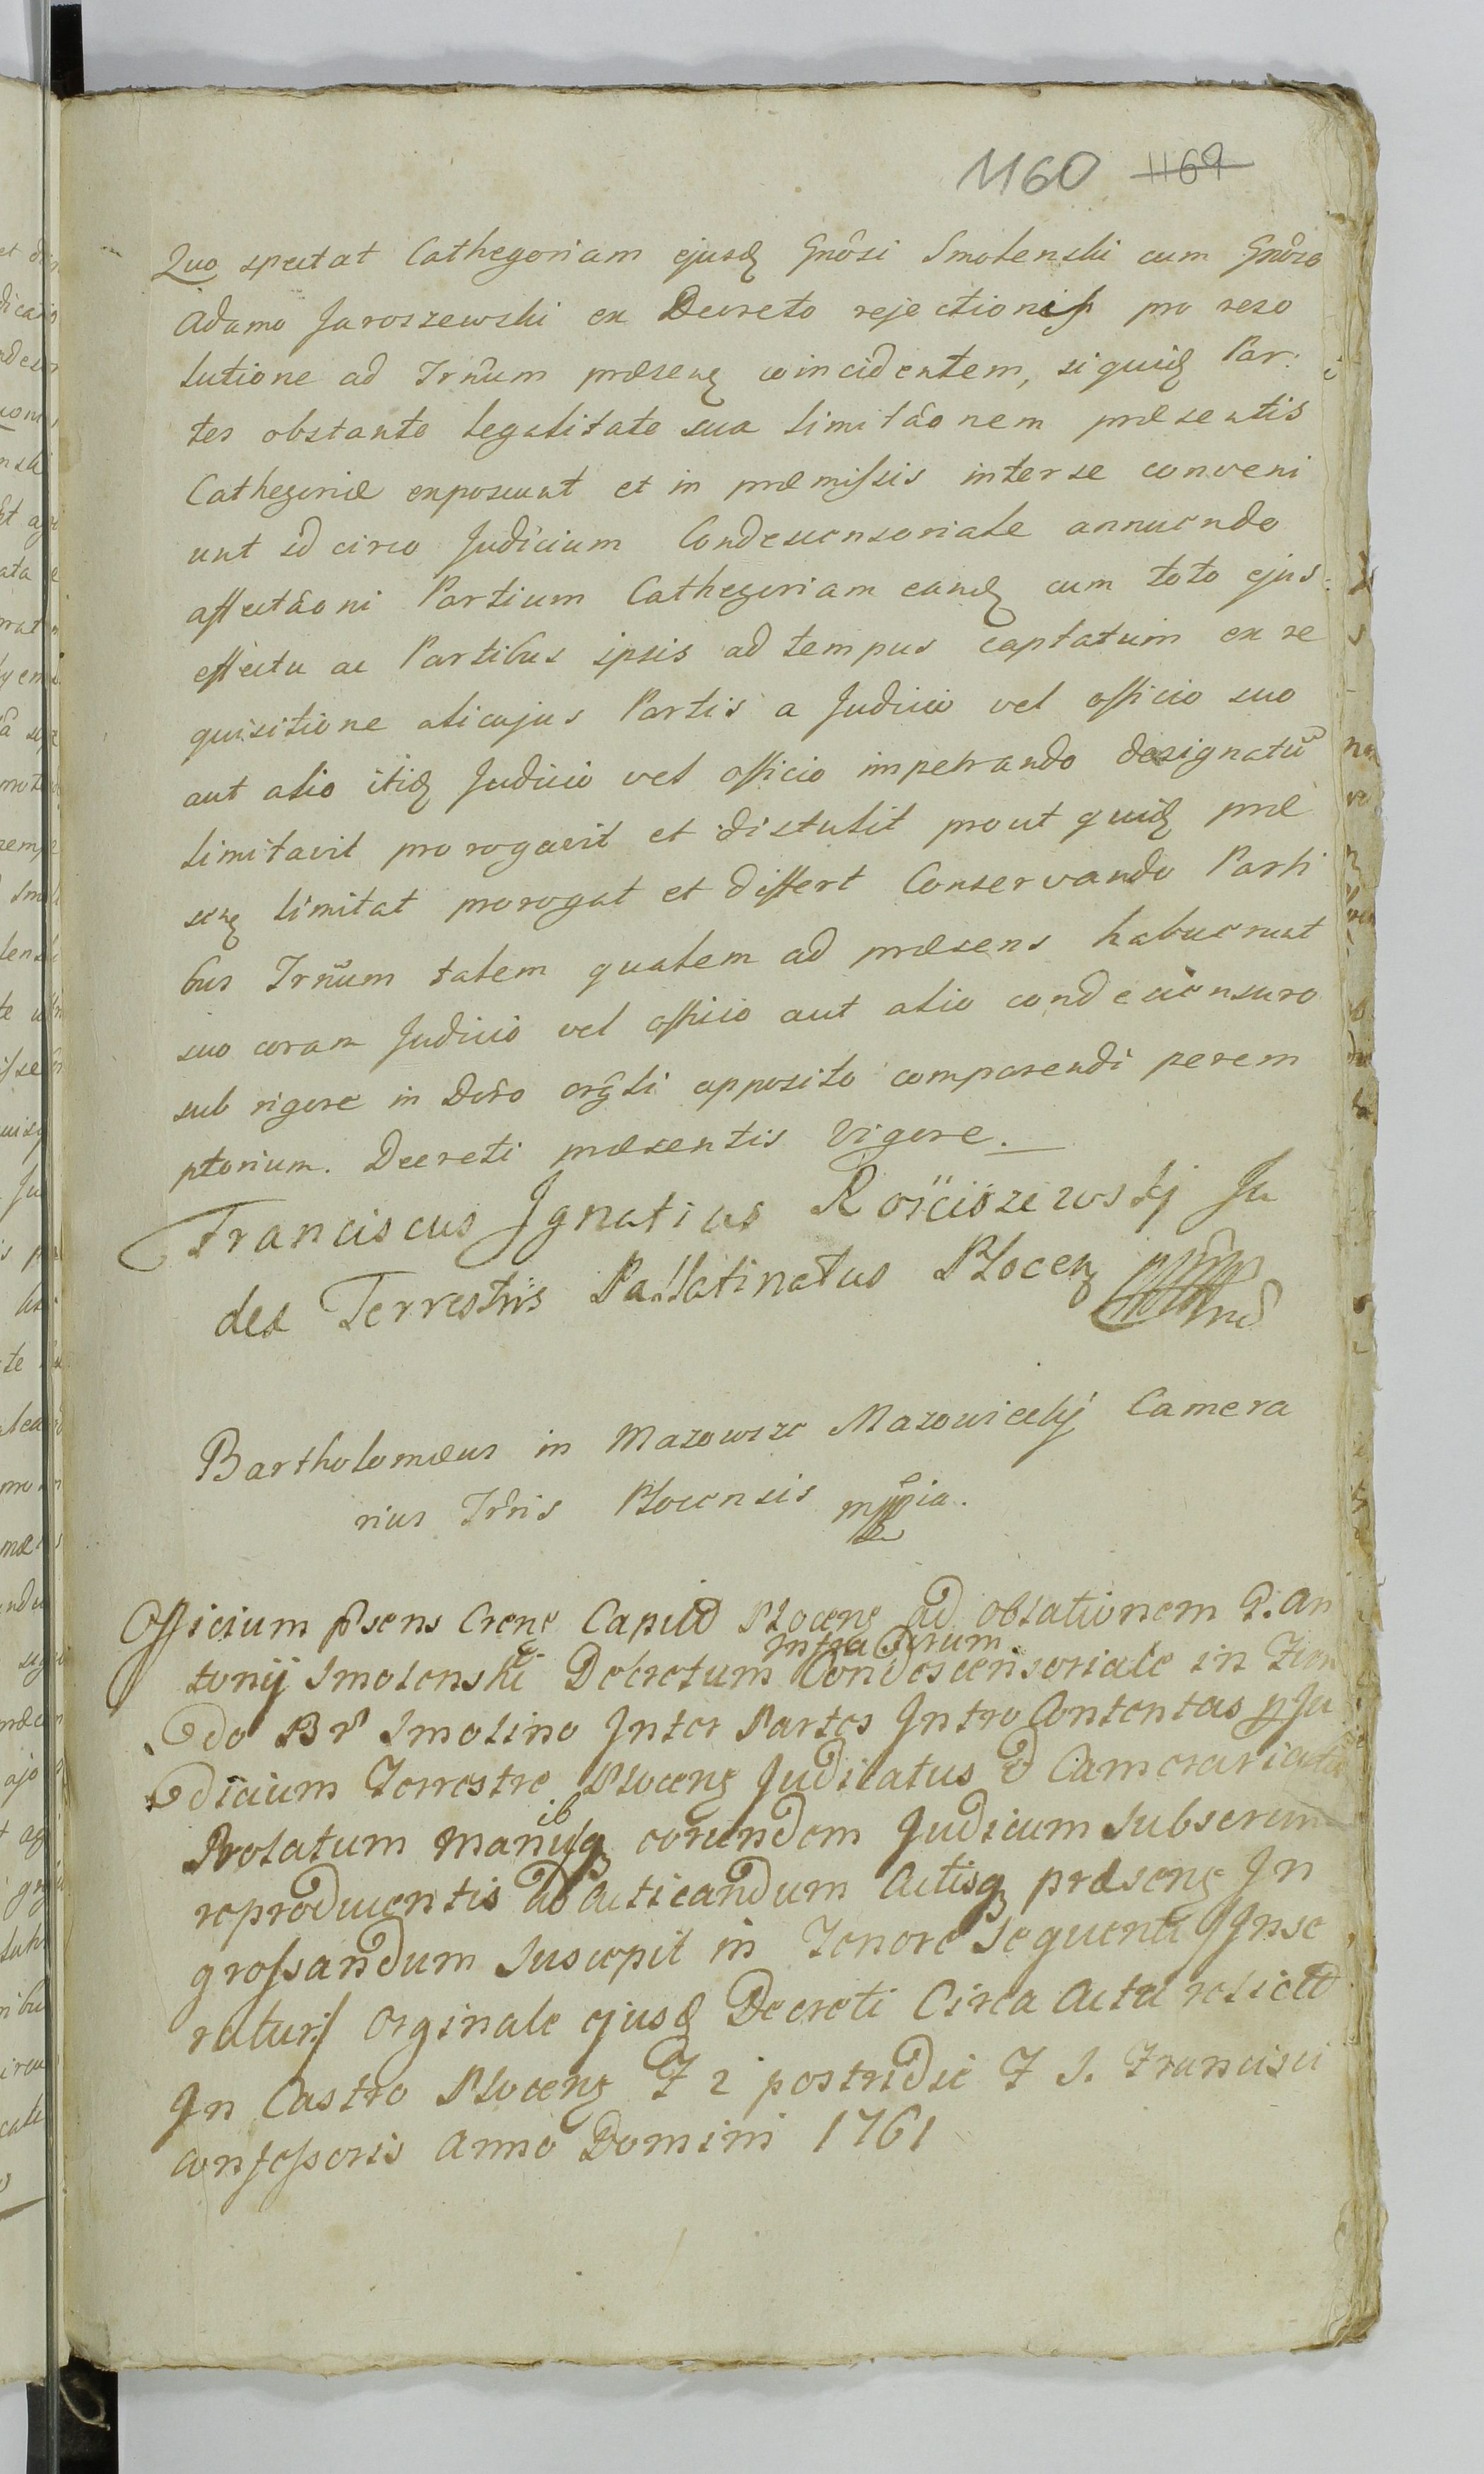 1160 1169
Quo spectat Cathegoriam ejusq Gnôsi Smolenski cum Gnôso
Adamo Jaroszewski ex Decreto rejectionis pro reso
lutione ad Trnûm præsenq coincidentem, siquiq Par:
tes obstante legalitate sua limitâonem præsentis
Cathegoriæ exposcunt et in præmissis inter se conveni
unt id circo Judicium Condescensoriale annuendo
affectâoni Partium Cathegoriam eandq cum toto ejus
effectu ac Partibus ipsis ad tempus captatum ex re
quisitione alicujus Partis a Judicio vel officio suo
aut alio itiq Judicio vel officio impetrando designatũ
limitavit prorogavit et distulit prout quiq præ
senq limitat prorogat et differt Conservando Parti
bus Trnûm talem qualem ad præsens habuerunt
suo coram Judicio vel officio aut alio condescensuro
sub rigore in Dcro orgli apposito comparendi perem
ptorium. Decreti præsentis vigore.
Franciscus Ignatius Rościszewskj Ju
dex Terrestris Pallatinatus Plocenq
Bartholomæus in Mazowsze Mazowieckj Camera
rius Trris Plocensis mppia.
Officium pnsens Crenq Capitd Plocenq ad oblationem G. An
tonij Smolenski Decretum Condescensoriale in Fun
Intra Scrum
do Br Smolino Inter Partes Intro Contentas p Ju
dicium Terrestre Plocenq Judicatus & Camerariatus
Prolatum manibusq eorundem Judicum Subscrim
reproducentis ad acticandum Actisq præsenq In
grossandum Suscepit in Tenore Sequenti Inse
ratur: / Orginale ejusq Decreti Circa Acta relictd
In Castro Plocenq F 2 postridie F S. Francisci
Confessoris Anno Domini 1761